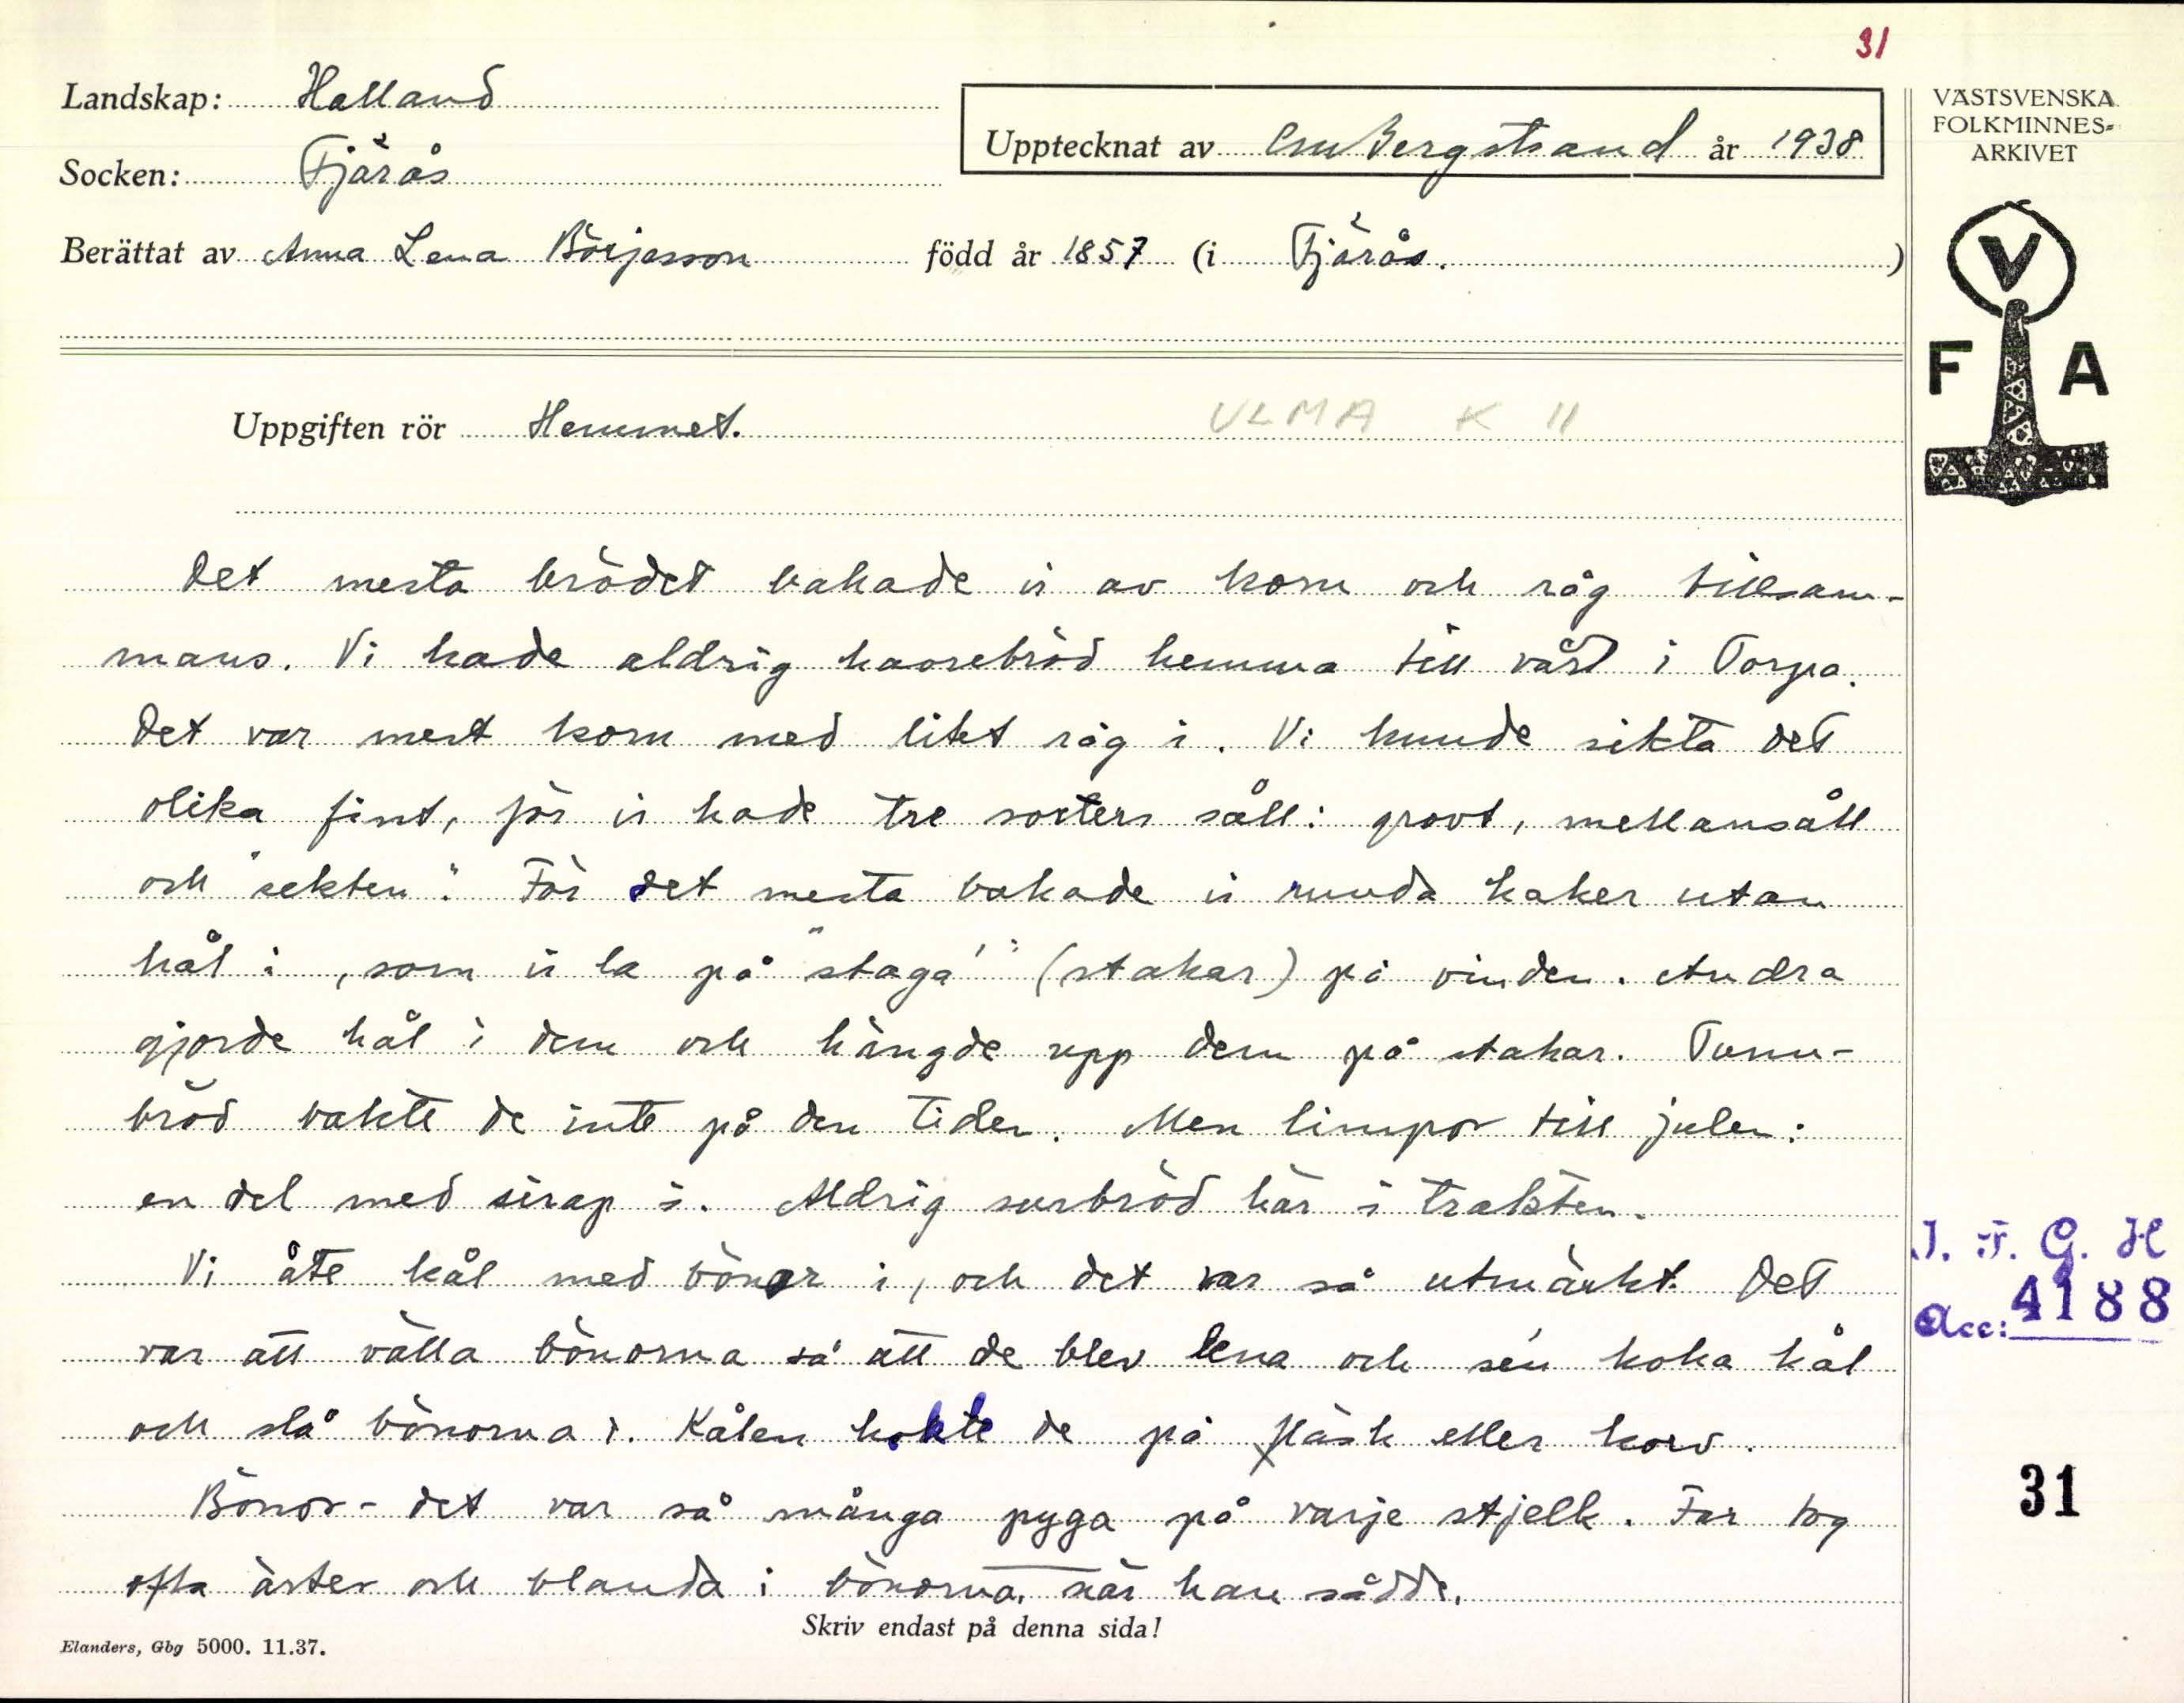 31
Landskap: Halland
Upptecknat av C.M. Bergstrand år 1938
Socken: Fjärås
Berättat av Anna Lena Börjesson född år 1857 (i Fjärås.)
VÄSTSVENSKA
FOLKMINNES=
ARKIVET
V
F A
Uppgiften rör Hemmet. ULMA K 11
Det mesta brödet bakade vi av korn och råg tillsam-
mans. Vi hade aldrig haorebröd hemma till vårt i Torpa.
Det var mest korn med litet råg i. Vi kunde sikta det
olika fint, för vi hade tre sorters såll: grovt, mellansåll
och "sekten". För det mesta bakade vi runda kakor utan
hål i, som vi la på "staga'" (stakar) på vinden. Andra
gjorde hål i dem och hängde upp dem på stakar. Tunn-
bröd bakte de inte på den tiden. Men limpor till julen:
en del med sirap i. Aldrig surbröd här i trakten.
Vi åte kål med bönor i, och det var så utmärkt. Det
var att välla bönorna så att de blev lena och sen koka kål
och slå bönorna i. Kålen kokte de på fläsk eller korv.
Bönor - det var så många pyga på varje stjelk. Far tog
ofta ärter och blanda i bönorna, när han sådde.
J. F. G. H
Acc: 4188
31
Skriv endast på denna sida!
Elanders, Gbg 5000. 11.37.